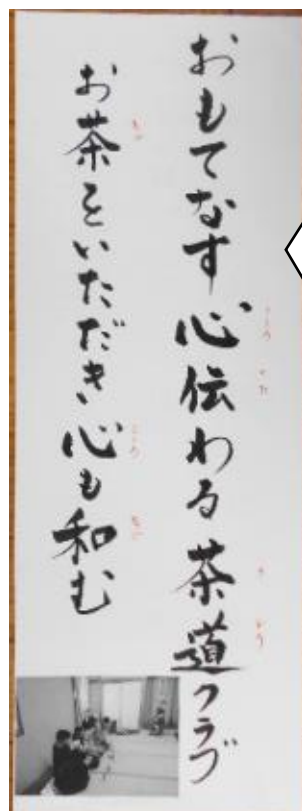 おもてなす心伝わる茶道クラブ
お茶をいただき心も和む